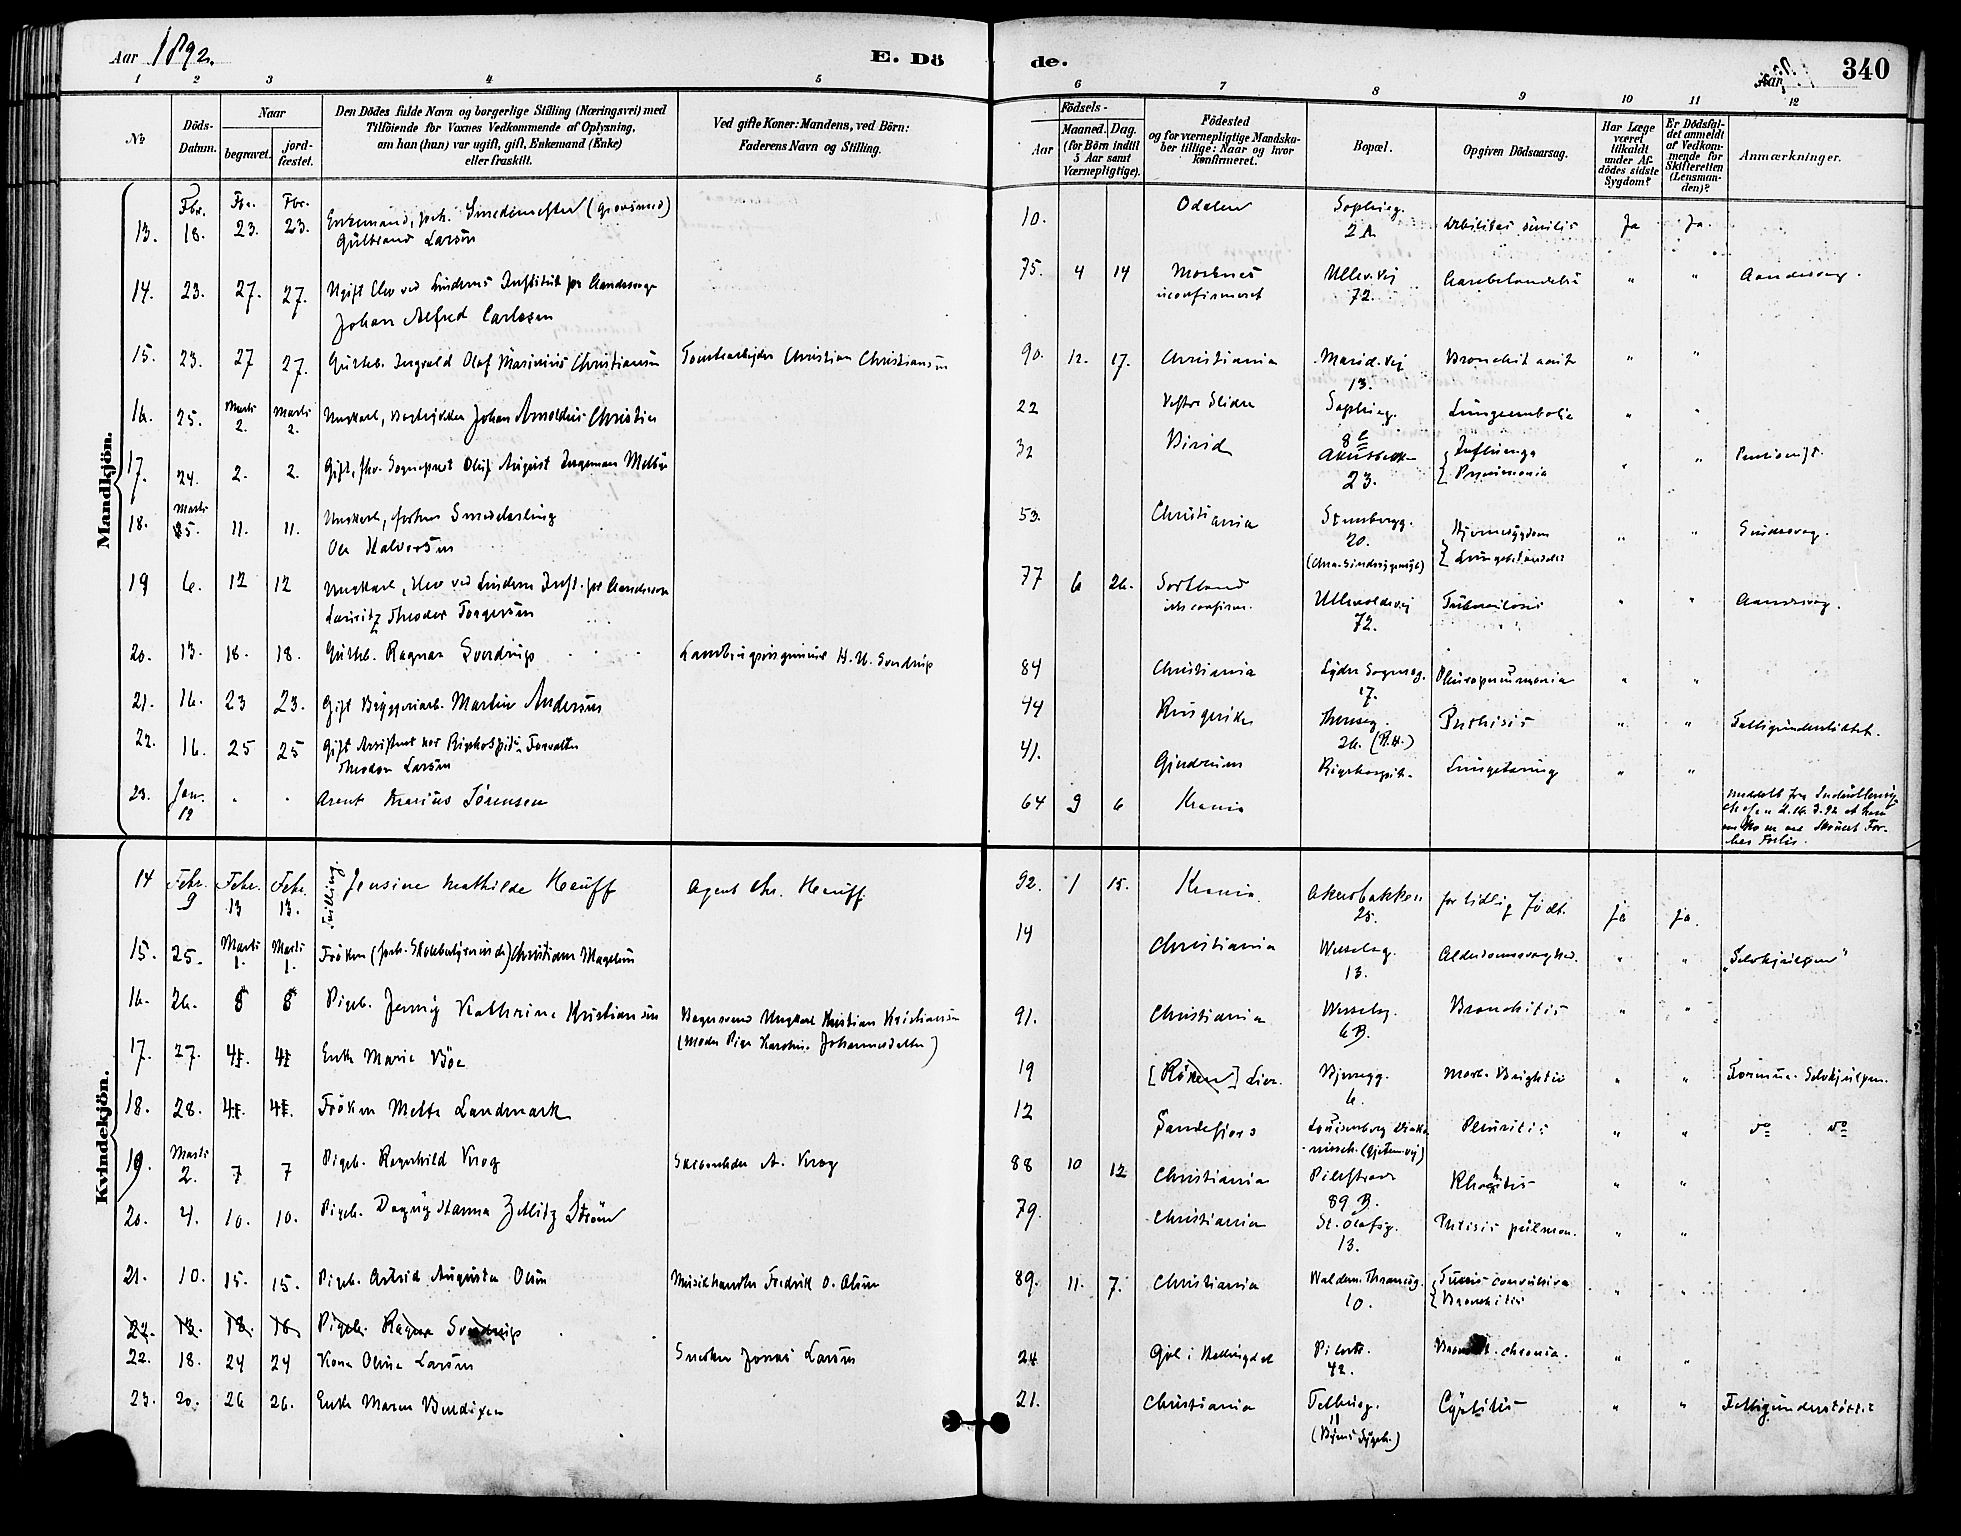 Aar 1892.
E. Dö
de.
Aar
340
1 2 3 4 5
6 7 8 9 10 11 12
No
Döds-Datum.
Naar
begravet.
jord-fæstet.
Den Dödes fulde Navn og borgerlige Stilling (Næringsvei) med
Tilföiende for Voxnes Vedkommende af Oplysning,
om han (hun) var ugift, gift, Enkemand (Enke)
eller fraskilt.
Ved gifte Koner: Mandens, ved Börn:
Faderens Navn og Stilling.
Födsels-
Aar
Maaned.
Dag.
(for Börn indtil
5 Aar samt
Værnepligtige).
Födested
og for værnepligtige Mandska-
ber tillige: Naar og hvor
Konfirmeret.
Bopæl.
Opgiven Dödsaarsag.
Har Læge
været
tilkaldt
under Af-
dödes sidste
Sygdom?
Er Dödsfal-
det anmeldt
af Vedkom-
mende for
Skifteretten
(Lensman-
den)?
Anmærkninger.
Mandkjön.
Fbr. Fbr. Fbr.
13. 18. 23. 23. Enkemand, forh. Smedemester (Grovsmed) Gulbrand Larsen 10. Odalen Sophieg. 2A. debilitas senilis Ja Ja.
14. 23. 27. 27. Ugift Elev ved Lindems Institut for Aandssvage Johan Alfred Carlesen 75. 4 14 Moskenes uconfirmeret Ullev.vej 72. " " Aandssvag.
15. 23. 27 27. Gutteb. Ingvald Olaf Marinius Christiansen Tomtearbejder Christian Christiansen 90. 12. 17. Christiania Marid.vej 13. Bronchit acut. " "
16. 25. Marts 2. Marts 2. Ungkarl, Johan Arnoldus Christian 22 Vestre Slidre Sophieg. 8 Lungeembolie " "
17. 24. 2. 2. Gift, fhv. Sognepræst Oluf August Melbye 32 Birid Akersbakken 23. Influenza Pneumonia " " Pensionist.
18. Marts 5. 11. 11. Ungkarl, forhen Smedelærling Ole Halvorsen 53. Christiania Stensbergg. 20. (Chra. Sindssygeasyl) Hjernesygdom Lungebetændelse " " Sindssvag.
19 6. 12 12 Ungkarl, Elev ved Lindems Inst. for Aandssvage Lauritz Theodor Torgersen 77 6 26. Sortland ikke confirm. Ullevoldsvej 72. Tuberculosis " " Aandssvag.
20. 13. 18. 18. Gutteb. Ragnar Sverdrup Landbrugsingeniør H. U. Sverdrup 84 Christiania Lyder Sagensg. 17. Pleuropneumonia " "
21. 16. 23 23. Gift Bryggeriarb. Martin Andersen 44 Ringerike Theresesg. 26. (R.H.) Phthisis " " Fattigunderstøttet.
22. 16. 25 25 Gift Assistent hos Rigshospit. Forvalter Theodor Larsen 41. Gjerdrum Rigshospit. Lungetæring " "
23. Jan. 12 . . Agent Marius Sørensen 64 9 6 Krania
Kvindekjön.
14 Febr. 9 Febr. 13 Febr. 13. Tvilling. Jensine Mathilde Hauff Agent Chr. Hauff 92. 1 15. Krania. Akersbakken 25. for tidlig Født. ja ja.
15. 25. Marts 1. Marts 1. Frøken (forh. Skolebestyrerinde) Christiane Magelsen 14 Christiania Wesselsg. 13. Alderdomssvaghed. " " "Selvhjælpen"
16. 26. 8 8 Pigeb. Jenny Kathrine Kristiansen Bagersvend Ungkarl Kristian Kristiansen (Moder Pige Karoline Johannesdatter) 91. Christiania Wesselsg. 6B. Bronchitis " "
17. 27. 4 4 Enke Marie Bøe 19 [Röken] Lier. Bjerregg. 6. Morb. Brightii " " Formue. Selvhjælpen.
18. 28. 4 4 Frøken Mette Landmark 12 Sandefjord Louisenberg Pleuritis " " do do
19. Marts 2. 7 7 Pigeb. Ragnhild Krog A. Krog 88 10 12 Christiania Pilestræde 89 B. Rhachitis " "
20. 4. 10. 10. Pigeb. Dagny Hanna Zetlitz Strøm 79. Christiania St. Olafsg. 13. Phtisis pulmon. " "
21. 10. 15. 15. Pigeb. Astrid Augusta Olsen Musikhandler Fredrik O. Olsen 89. 11. 7. Christiania Waldem. Thranesg. 10. Tussis convulsiva Bronchitis " "
22. 13. 18. 18. Pigeb. Ragna Sverdrup
22. 18. 24 24 Kone Oline Larsen Snedker Jonas Larsen 24 Gol i Hallingdal Pilestr. 42. chronica. " "
23. 20. 26 26. Enke Maren Bendixen 21. Christiania 11 (Byens Sygeh.) Cystitis " " Fattigunderstøttet